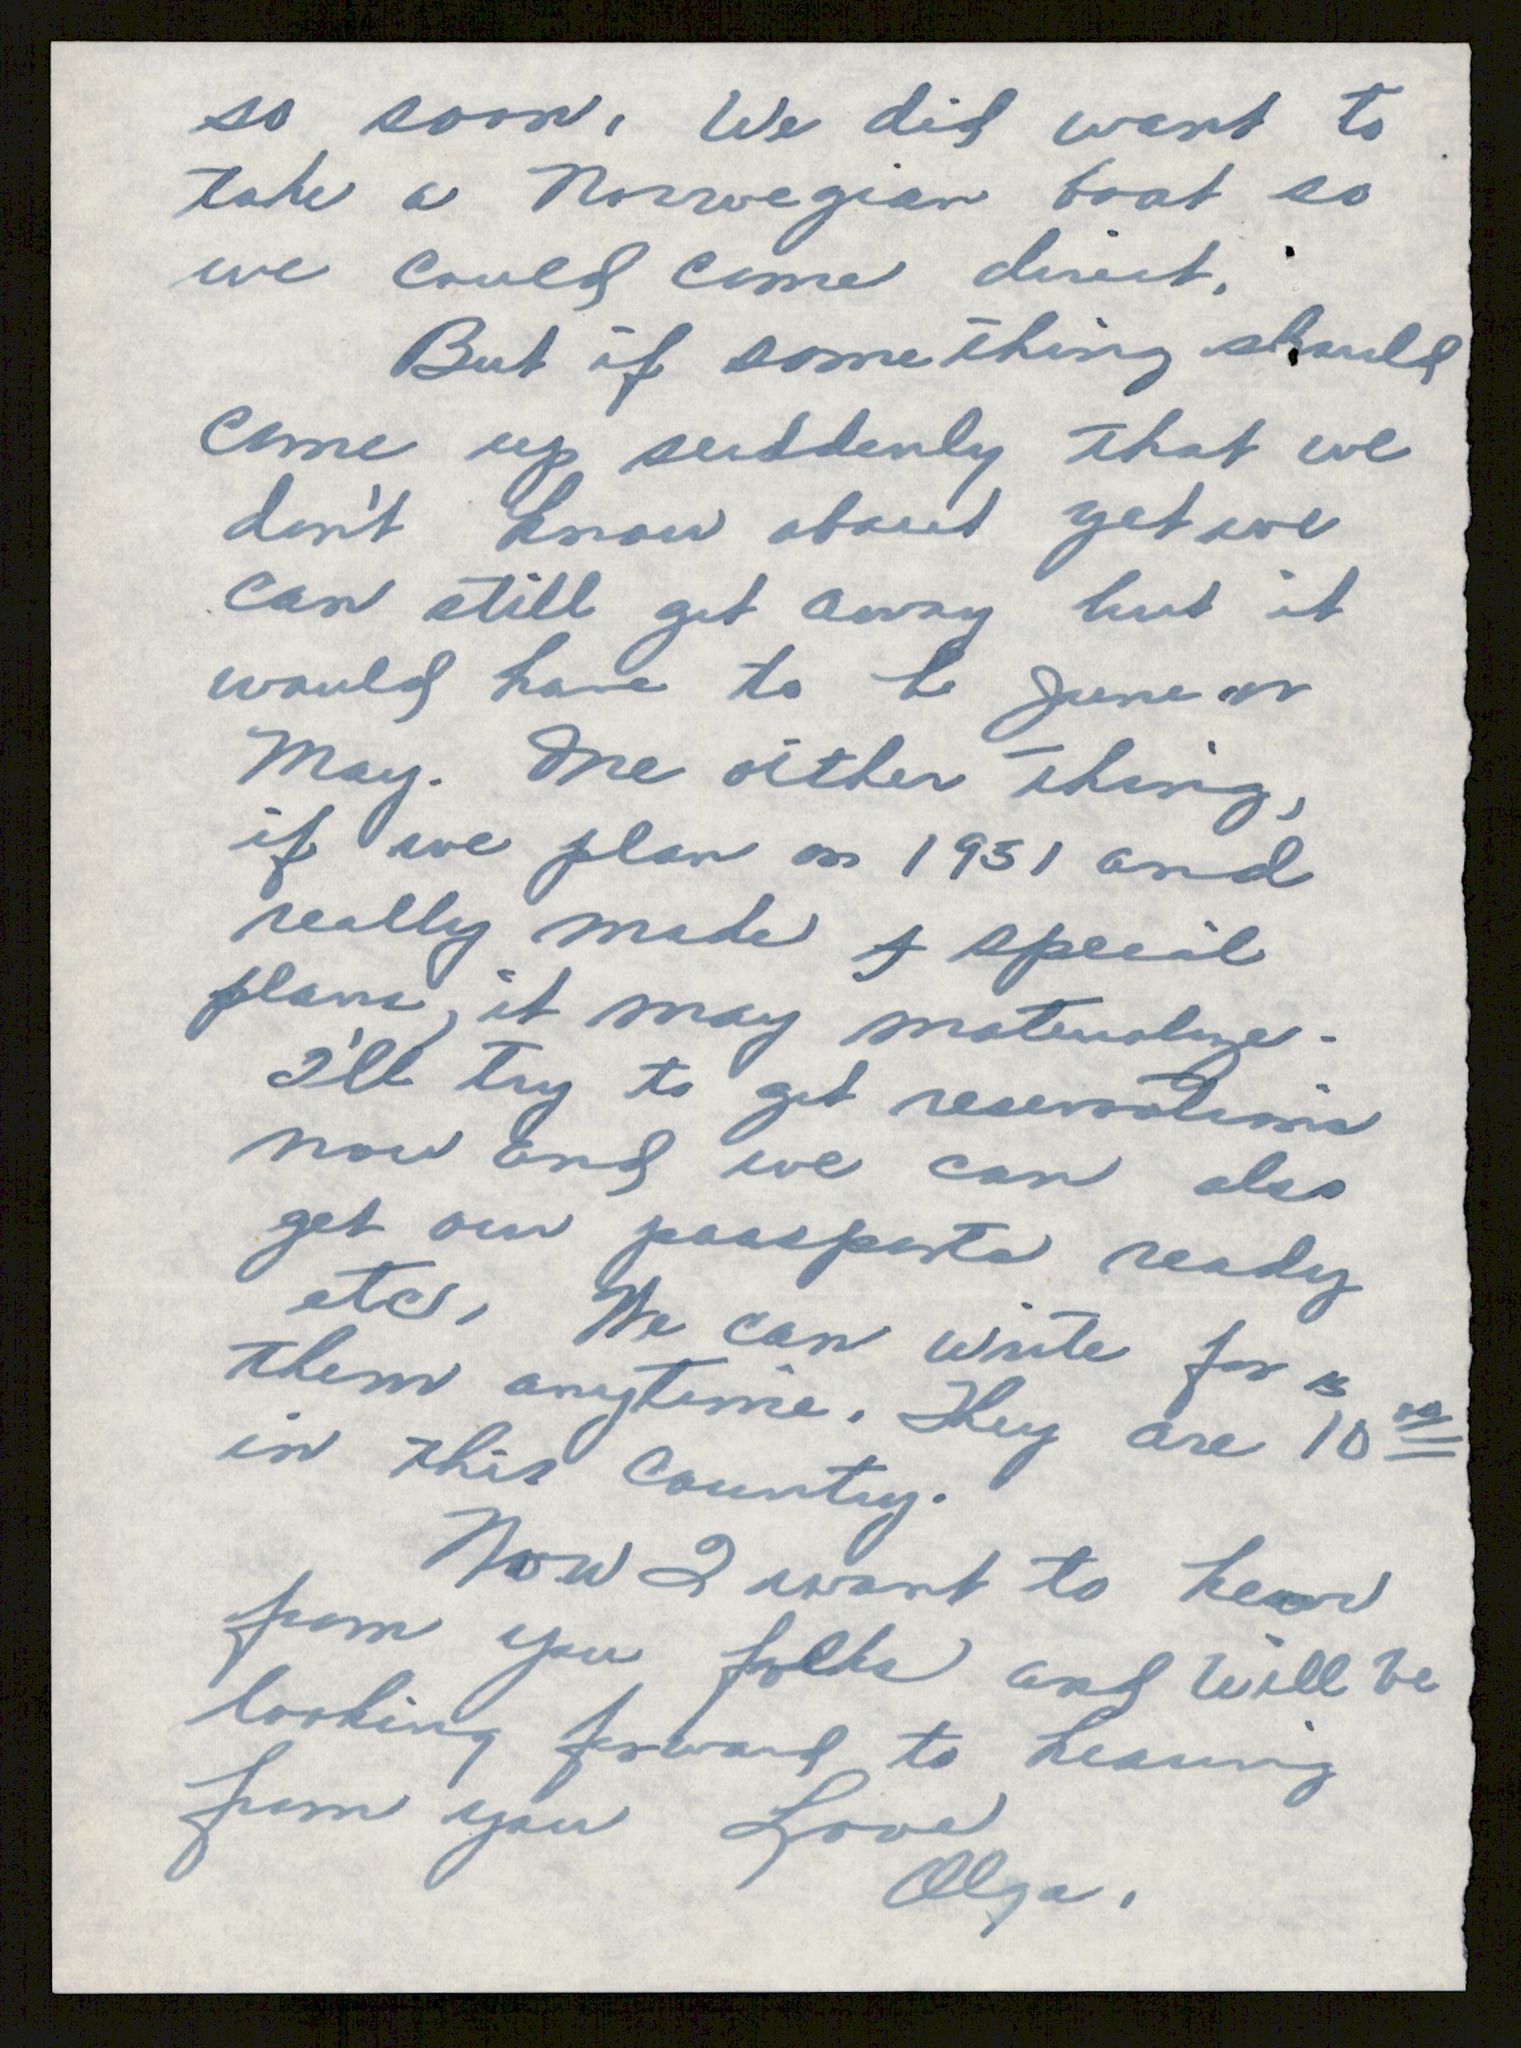 so soon. We did want to
take a Norwegian boat so
we could come direct.
But if something should
come up suddenly that we
don't know about yet we
can still get away but it
would have to be June or
May. One other thing,
if we plan on 1951 and
really made & special
plans, it may materialize.
I'll try to get reservations
now and we can also
get our passports ready
etc. We can write for
them anytime. They are 10.00
in this country.
Now I want to hear
from you folks and will be
looking forward to hearing
from you Love
Olga.